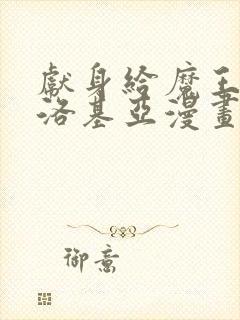 獻身給魔王
洛基亞漫畫
御意